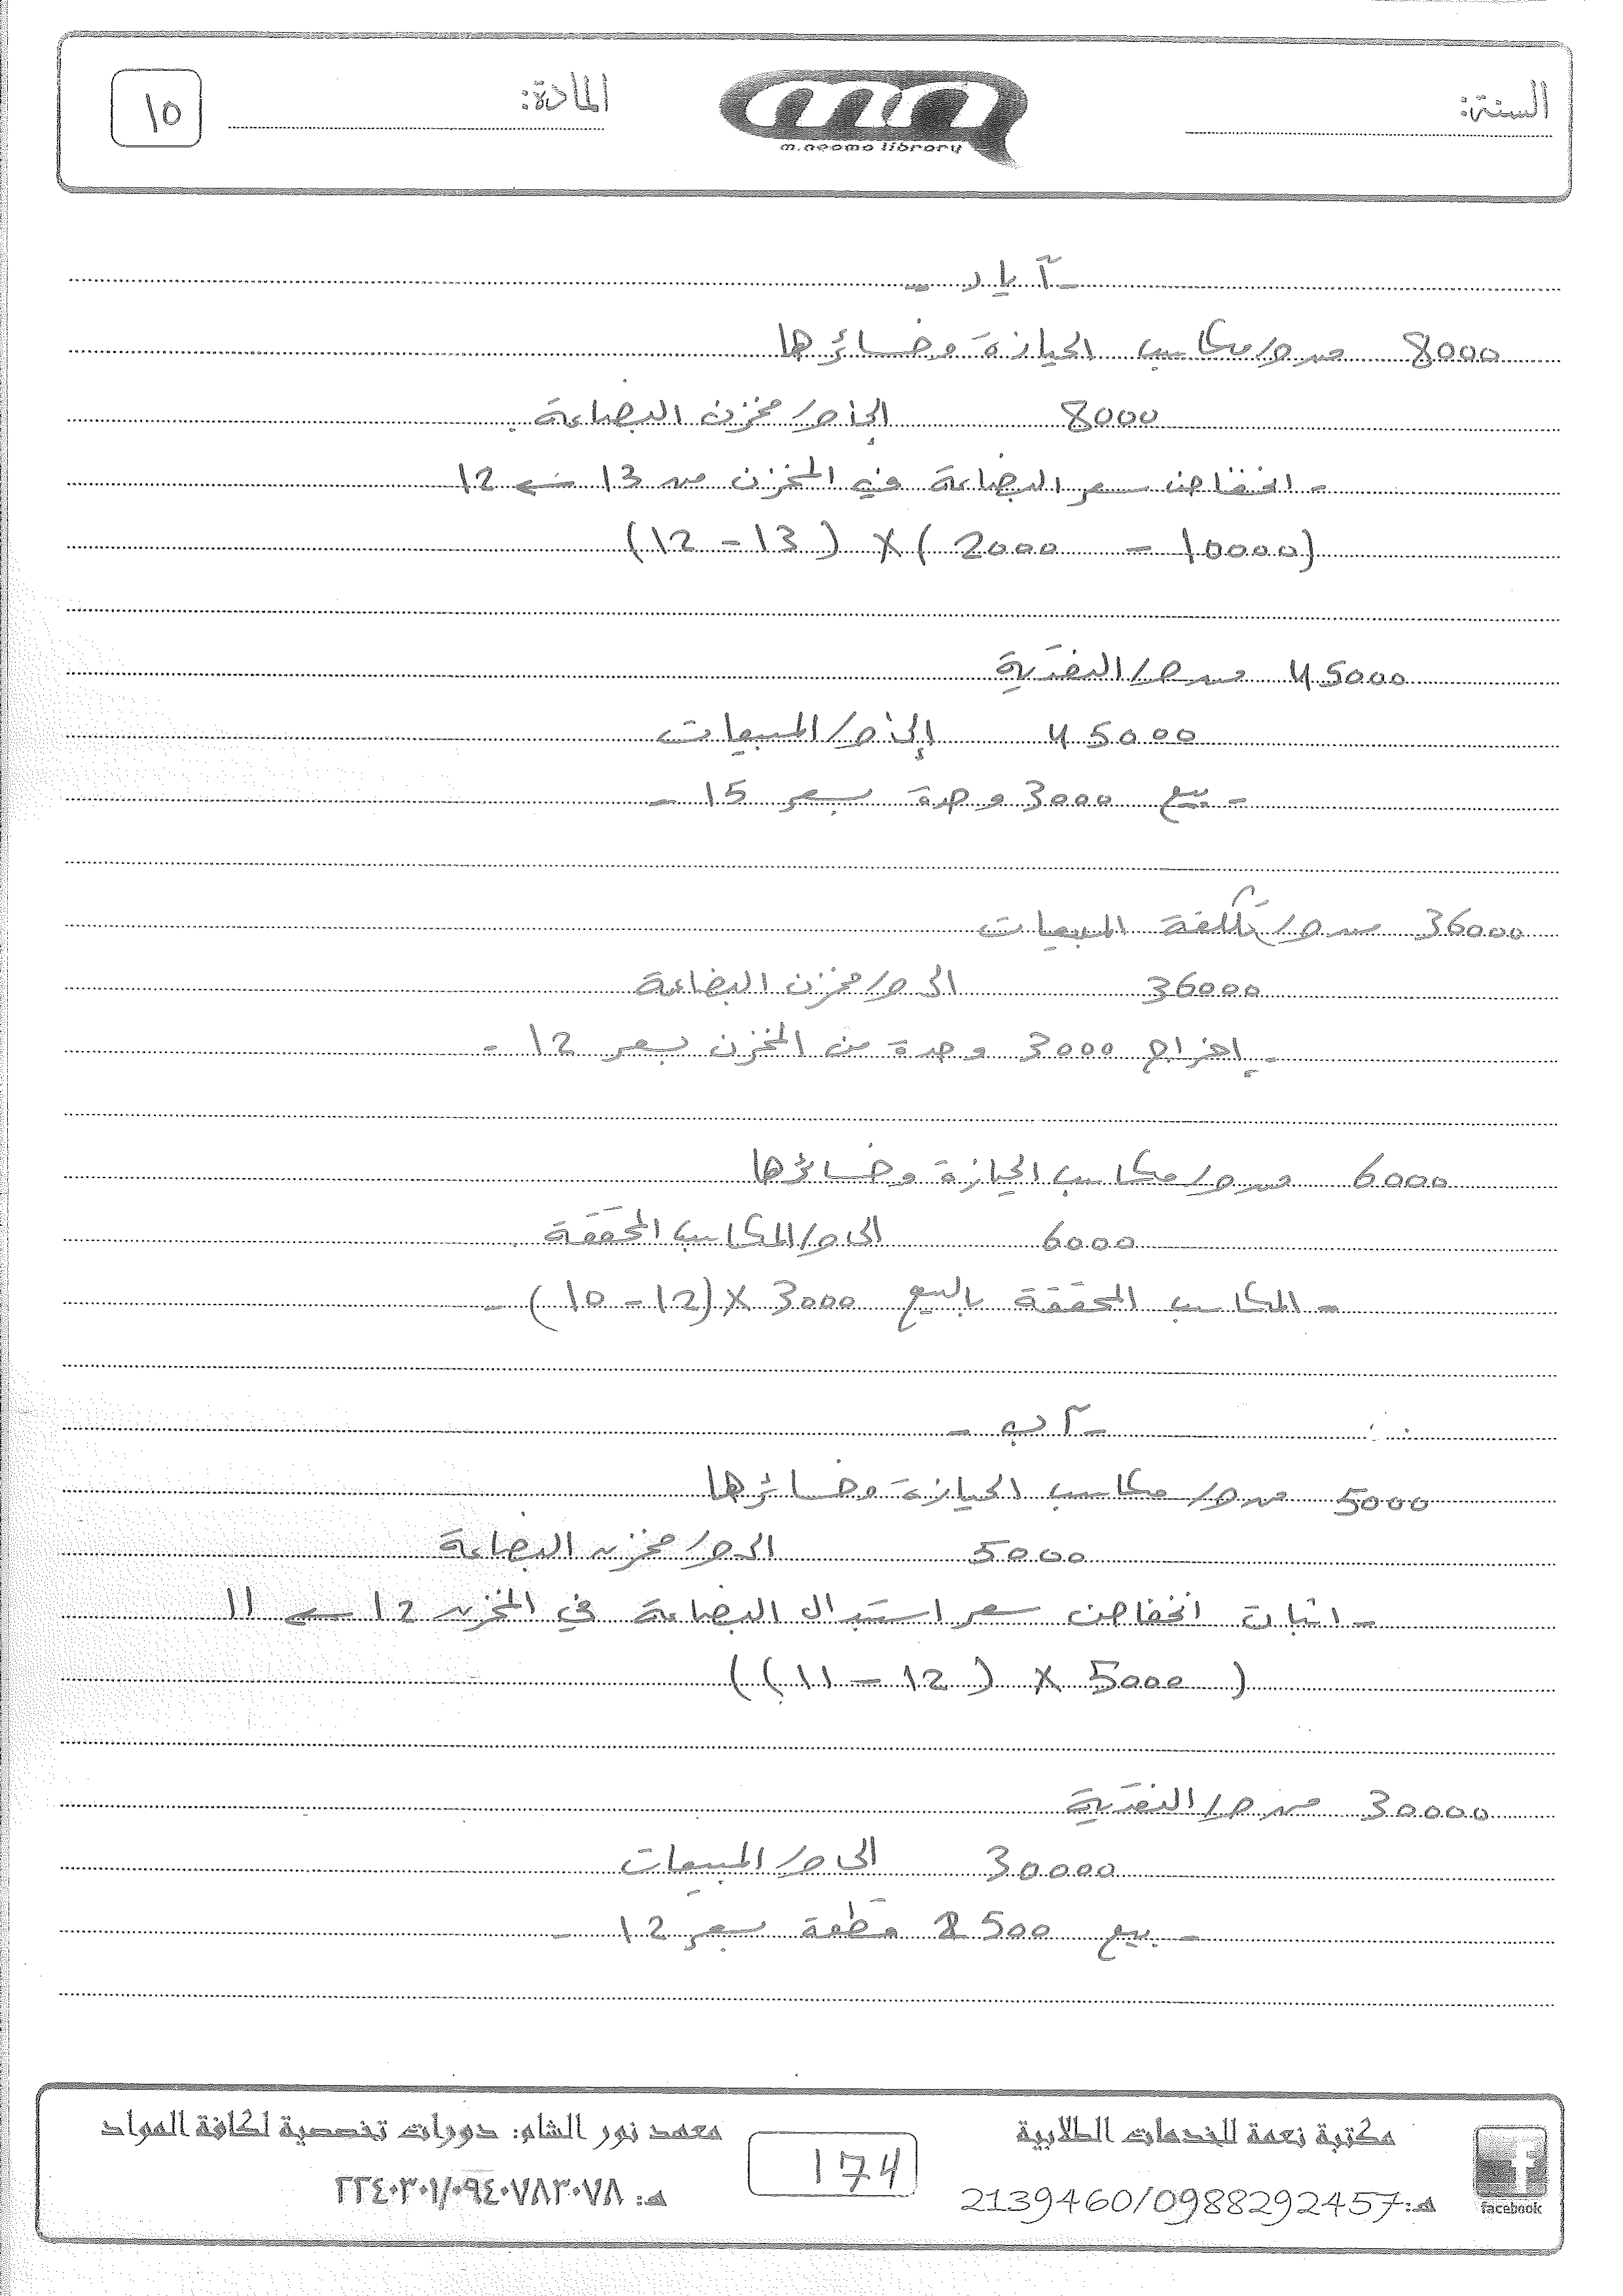 السنة:
m.neomo library
المادة:
10
- آيار -
8000 من ح/ مكاسب الحيازة وخسائرها
8000 إلى ح/ مخزن البضاعة
- انخفاض سعر البضاعة في المخزن من 13 ← 12
(10000 - 2000) × (13 - 12)
45000 من ح/ النقدية
45000 إلى ح/ المبيعات
- بيع 3000 وحدة بسعر 15 -
36000 من ح/ تكلفة المبيعات
36000 الى ح/ مخزن البضاعة
- إخراج 3000 وحدة من المخزن بسعر 12 -
6000 من ح/ مكاسب الحيازة وخسائرها
6000 الى ح/ المكاسب المحققة
- المكاسب المحققة بالبيع 3000 × (12 - 10) -
- آب -
5000 من ح/ مكاسب الحيازة وخسائرها
5000 الى ح/ مخزن البضاعة
- اثبات انخفاض سعر استبدال البضاعة في المخزن 12 ← 11
( 5000 × (12 - 11))
30000 من ح/ النقدية
30000 الى ح/ المبيعات
- بيع 2500 قطعة بسعر 12 -
مكتبة نعمة للخدمات الطلابية
هـ: 2139460/0988292457
facebook
174
معهد نور الشام: دورات تخصصية لكافة المواد
هـ: ٢٢٤٠٣٠١/٠٩٤٠٧٨٣٠٧٨